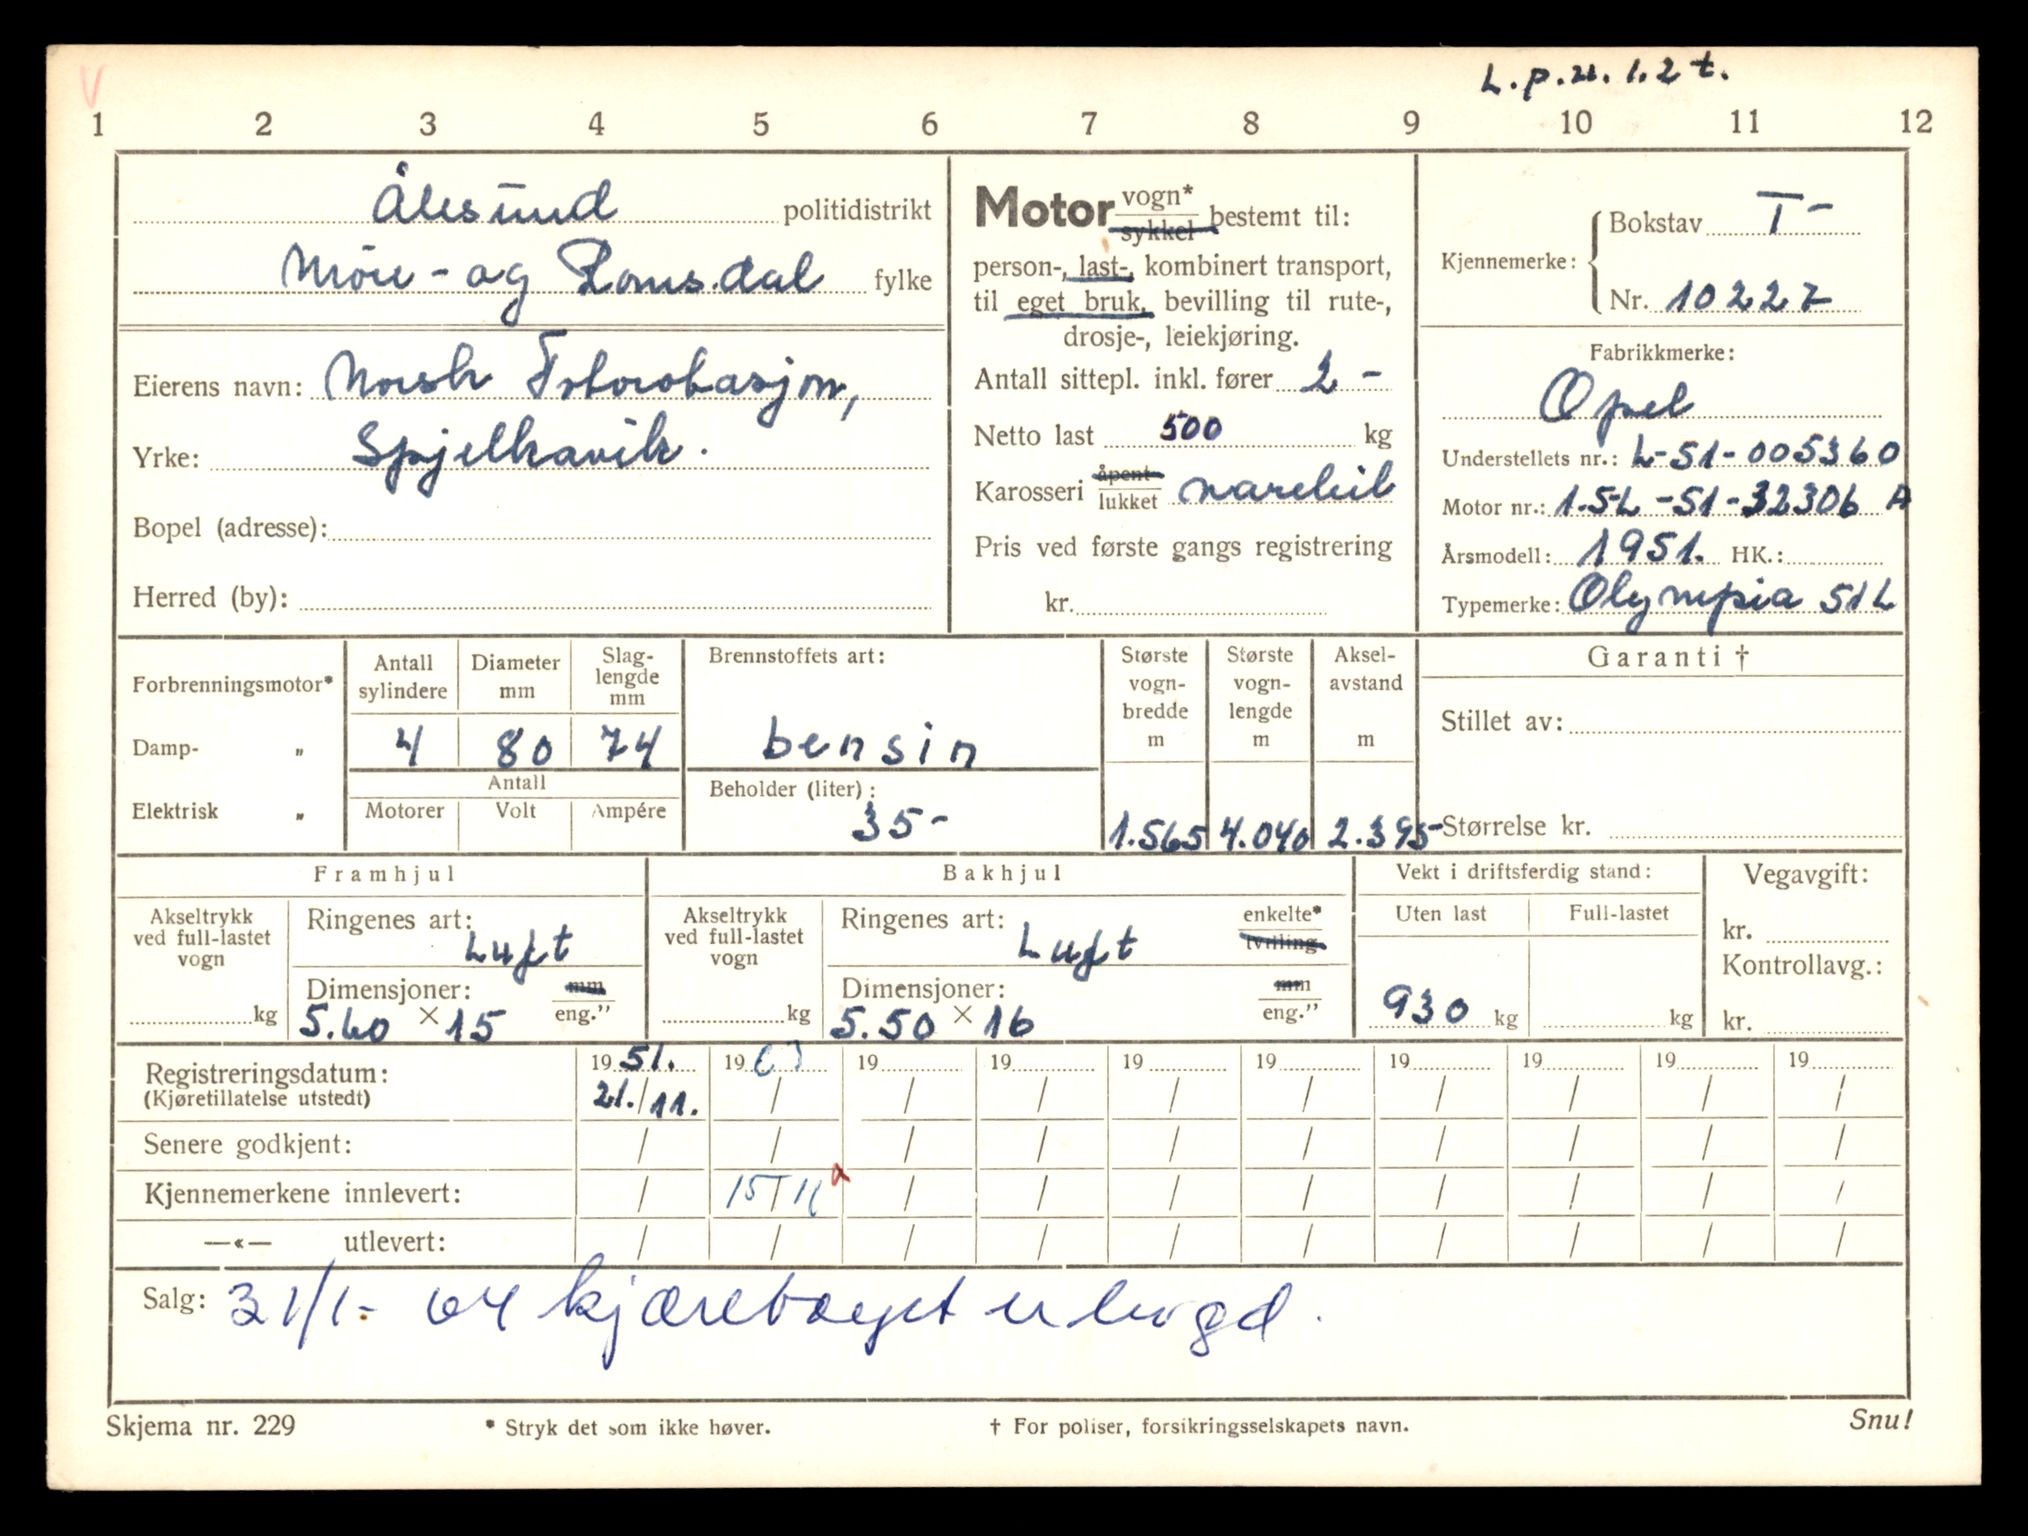 V
L.p.u. 1.2 t.
1 2 3 4 5 6 7 8 9 10 11 12
Ålesund politidistrikt
Möre- og Romsdal fylke
Eierens navn: Norsk
Yrke: Spjelkavik.
Bopel (adresse):
Herred (by):
Motor vogn* sykkel bestemt til:
person-, last-, kombinert transport,
til eget bruk, bevilling til rute-,
drosje-, leiekjøring.
Antall sittepl. inkl. fører 2 -
Netto last 500 kg
Karosseri åpent lukket varebil
Pris ved første gangs registrering
kr.
Kjennemerke: Bokstav T-
Nr. 10227
Fabrikkmerke:
Opel
Understellets nr.: L-51-005360
Motor nr.: 1.5L-51-32306 A
Årsmodell: 1951. HK.:
Typemerke: Olympia 51L
Forbrenningsmotor*
Damp- "
Elektrisk "
Antall sylindere Diameter mm Slag-lengde mm
4 80 74
Antall
Motorer Volt Ampére
Brennstoffets art:
bensin
Beholder (liter):
35-
Største vogn-bredde m Største vogn-lengde m Aksel-avstand m
1.565 4.040 2.395-
Garanti †
Stillet av:
Størrelse kr.
Framhjul
Akseltrykk ved full-lastet vogn
kg
Ringenes art:
Luft
Dimensjoner: mm eng."
5.60 × 15
Bakhjul
Akseltrykk ved full-lastet vogn
kg
Ringenes art: enkelte* tvilling
Luft
Dimensjoner: mm eng."
5.50 × 16
Vekt i driftsferdig stand:
Uten last Full-lastet
930 kg kg
Vegavgift:
kr.
Kontrollavg.:
kr.
Registreringsdatum: 19 51. 19 63 19 19 19 19 19 19 19 19
(Kjøretillatelse utstedt) 21./11. / / / / / / / / /
Senere godkjent: / / / / / / / / / /
Kjennemerkene innlevert: / 15/11 / / / / / / / /
—«— utlevert: / / / / / / / / / /
Salg: 31/1- 64 kjæretøyet er hugd.
Skjema nr. 229 * Stryk det som ikke høver. † For poliser, forsikringsselskapets navn. Snu!